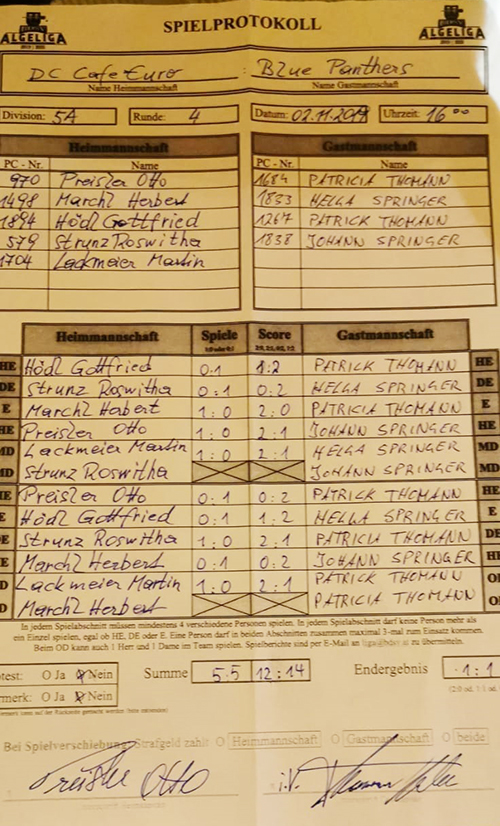 ALGELIGA
SPIELPROTOKOLL
ALGELIGA
DC Cafe Euro : Blue Panthers
Name Heimmannschaft Name Gastmannschaft
Division: 5A Runde: 4 Datum: 02.11.2019 Uhrzeit: 16 00
Heimmannschaft Gastmannschaft
PC - Nr. Name PC - Nr. Name
970 Preisler Otto 1684 PATRICIA THOMANN
1498 Marchl Herbert 1833 HELGA SPRINGER
1894 Hödl Gottfried 1267 PATRICK THOMANN
579 Strunz Roswitha 1838 JOHANN SPRINGER
1704 Lackmeier Martin
Heimmannschaft Spiele Score Gastmannschaft
HE Hödl Gottfried 0:1 1:2 PATRICK THOMANN HE
DE Strunz Roswitha 0:1 0:2 HELGA SPRINGER DE
E Marchl Herbert 1:0 2:0 PATRICIA THOMANN E
HE Preisler Otto 1:0 2:1 JOHANN SPRINGER HE
MD Lackmeier Martin 1:0 2:1 HELGA SPRINGER MD
MD Strunz Roswitha JOHANN SPRINGER MD
HE Preisler Otto 0:1 0:2 PATRICK THOMANN HE
E Hödl Gottfried 0:1 1:2 HELGA SPRINGER E
E Strunz Roswitha 1:0 2:1 PATRICIA THOMANN DE
E Marchl Herbert 0:1 0:2 JOHANN SPRINGER HE
D Lackmeier Martin 1:0 2:1 PATRICK THOMANN OD
D Marchl Herbert PATRICIA THOMANN
In jedem Spielabschnitt müssen mindestens 4 verschiedene Personen spielen. In jedem Spielabschnitt darf keine Person mehr als
ein Einzel spielen, egal ob HE, DE oder E. Eine Person darf in beiden Abschnitten zusammen maximal 3-mal zum Einsatz kommen.
Beim OD kann auch 1 Herr und 1 Dame im Team spielen. Spielberichte sind per E-Mail an zu übermitteln.
test: O Ja O Nein Summe 5:5 12:14 Endergebnis 1:1
merk: O Ja O Nein
Bei Spielverschiebung: Strafgeld zahlt O Heimmannschaft O Gastmannschaft O beide
Preisler Otto i.V.